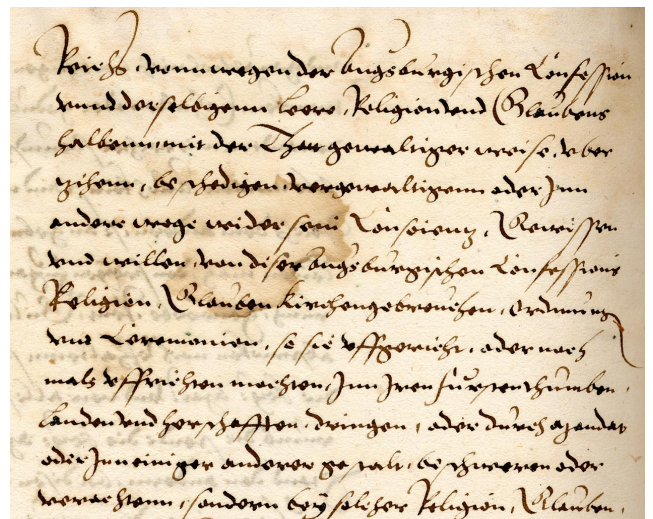 Reichs, vonn wegen der Augsburgischen Confession
vnnd derselbigenn leere, Religion vnd Glaubens
halbenn mit der That gewaltiger weise, vber
zihenn, beschedigen, vergewaltigenn oder Jnn
andere wege wider sein Conscientz, Gewissen
vnd willen, von diser Augsburgischen Confessions
Religion, Glauben Kirchengebreuchen, Ordnung
vnd Ceremonien, so sie vffgericht, oder nach
mals vffrichten mochten, Jnn Jren furstenthumben,
Landen vnd herschafften, dringen, oder durch mandat
oder Jnn einiger anderer gestalt, beschweren oder
verachtenn, sondern bey solcher Religion, Glauben,